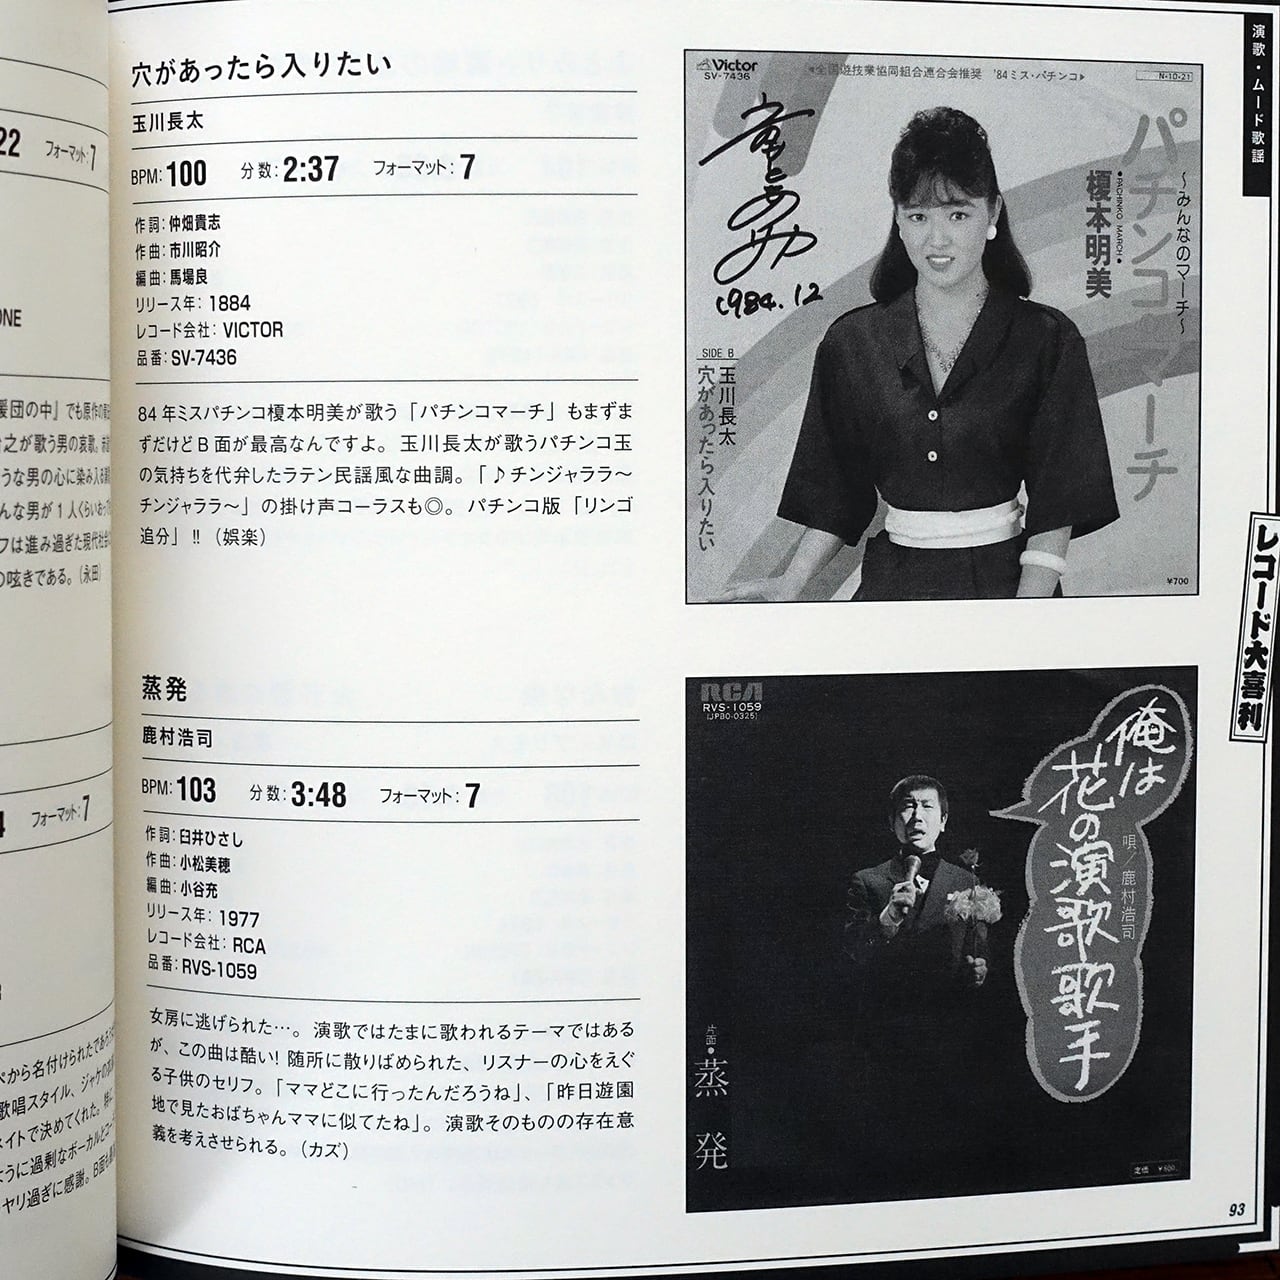 22
フォーマット:7
ONE
援団の中」でも原作の
之が歌う男の哀歌。
うな男の心に染み入る
んな男が1人くらい
フは進み過ぎた現代社会
の呟きである。（永田）
4
フォーマット:7
ペから名付けられたであろ
歌唱スタイル、ジャケの
メイトで決めてくれた。
ように過剰なボーカルと
ヤリ過ぎに感謝。B面も
穴があったら入りたい
玉川長太
BPM:100 分数:2:37 フォーマット:7
作詞:仲畑貴志
作曲:市川昭介
編曲:馬場良
リリース年:1884
レコード会社:VICTOR
品番:SV-7436
84年ミスパチンコ榎本明美が歌う「パチンコマーチ」もまずま
ずだけどB面が最高なんですよ。玉川長太が歌うパチンコ玉
の気持ちを代弁したラテン民謡風な曲調。「♪チンジャララ〜
チンジャララ〜」の掛け声コーラスも◎。パチンコ版「リンゴ
追分」!!（娯楽）
Victor
SV-7436
◀全国遊技業協同組合連合会推奨 '84ミス・パチンコ▶
N-10-21
パチンコ・マーチ
〜みんなのマーチ〜
●PACHINKO MARCH●
榎本明美
1984.12
SIDE B
玉川長太
穴があったら入りたい
¥700
蒸発
鹿村浩司
BPM:103 分数:3:48 フォーマット:7
作詞:臼井ひさし
作曲:小松美穂
編曲:小谷充
リリース年:1977
レコード会社:RCA
品番:RVS-1059
女房に逃げられた…。演歌ではたまに歌われるテーマではある
が、この曲は酷い! 随所に散りばめられた、リスナーの心をえぐ
る子供のセリフ。「ママどこに行ったんだろうね」、「昨日遊園
地で見たおばちゃんママに似てたね」。演歌そのものの存在意
義を考えさせられる。（カズ）
RCA
RVS-1059
(JPBO-0325)
俺は
花の演歌歌手
唄/鹿村浩司
片面●蒸発
定価 ¥600
演歌・ムード歌謡
レコード大喜利
93